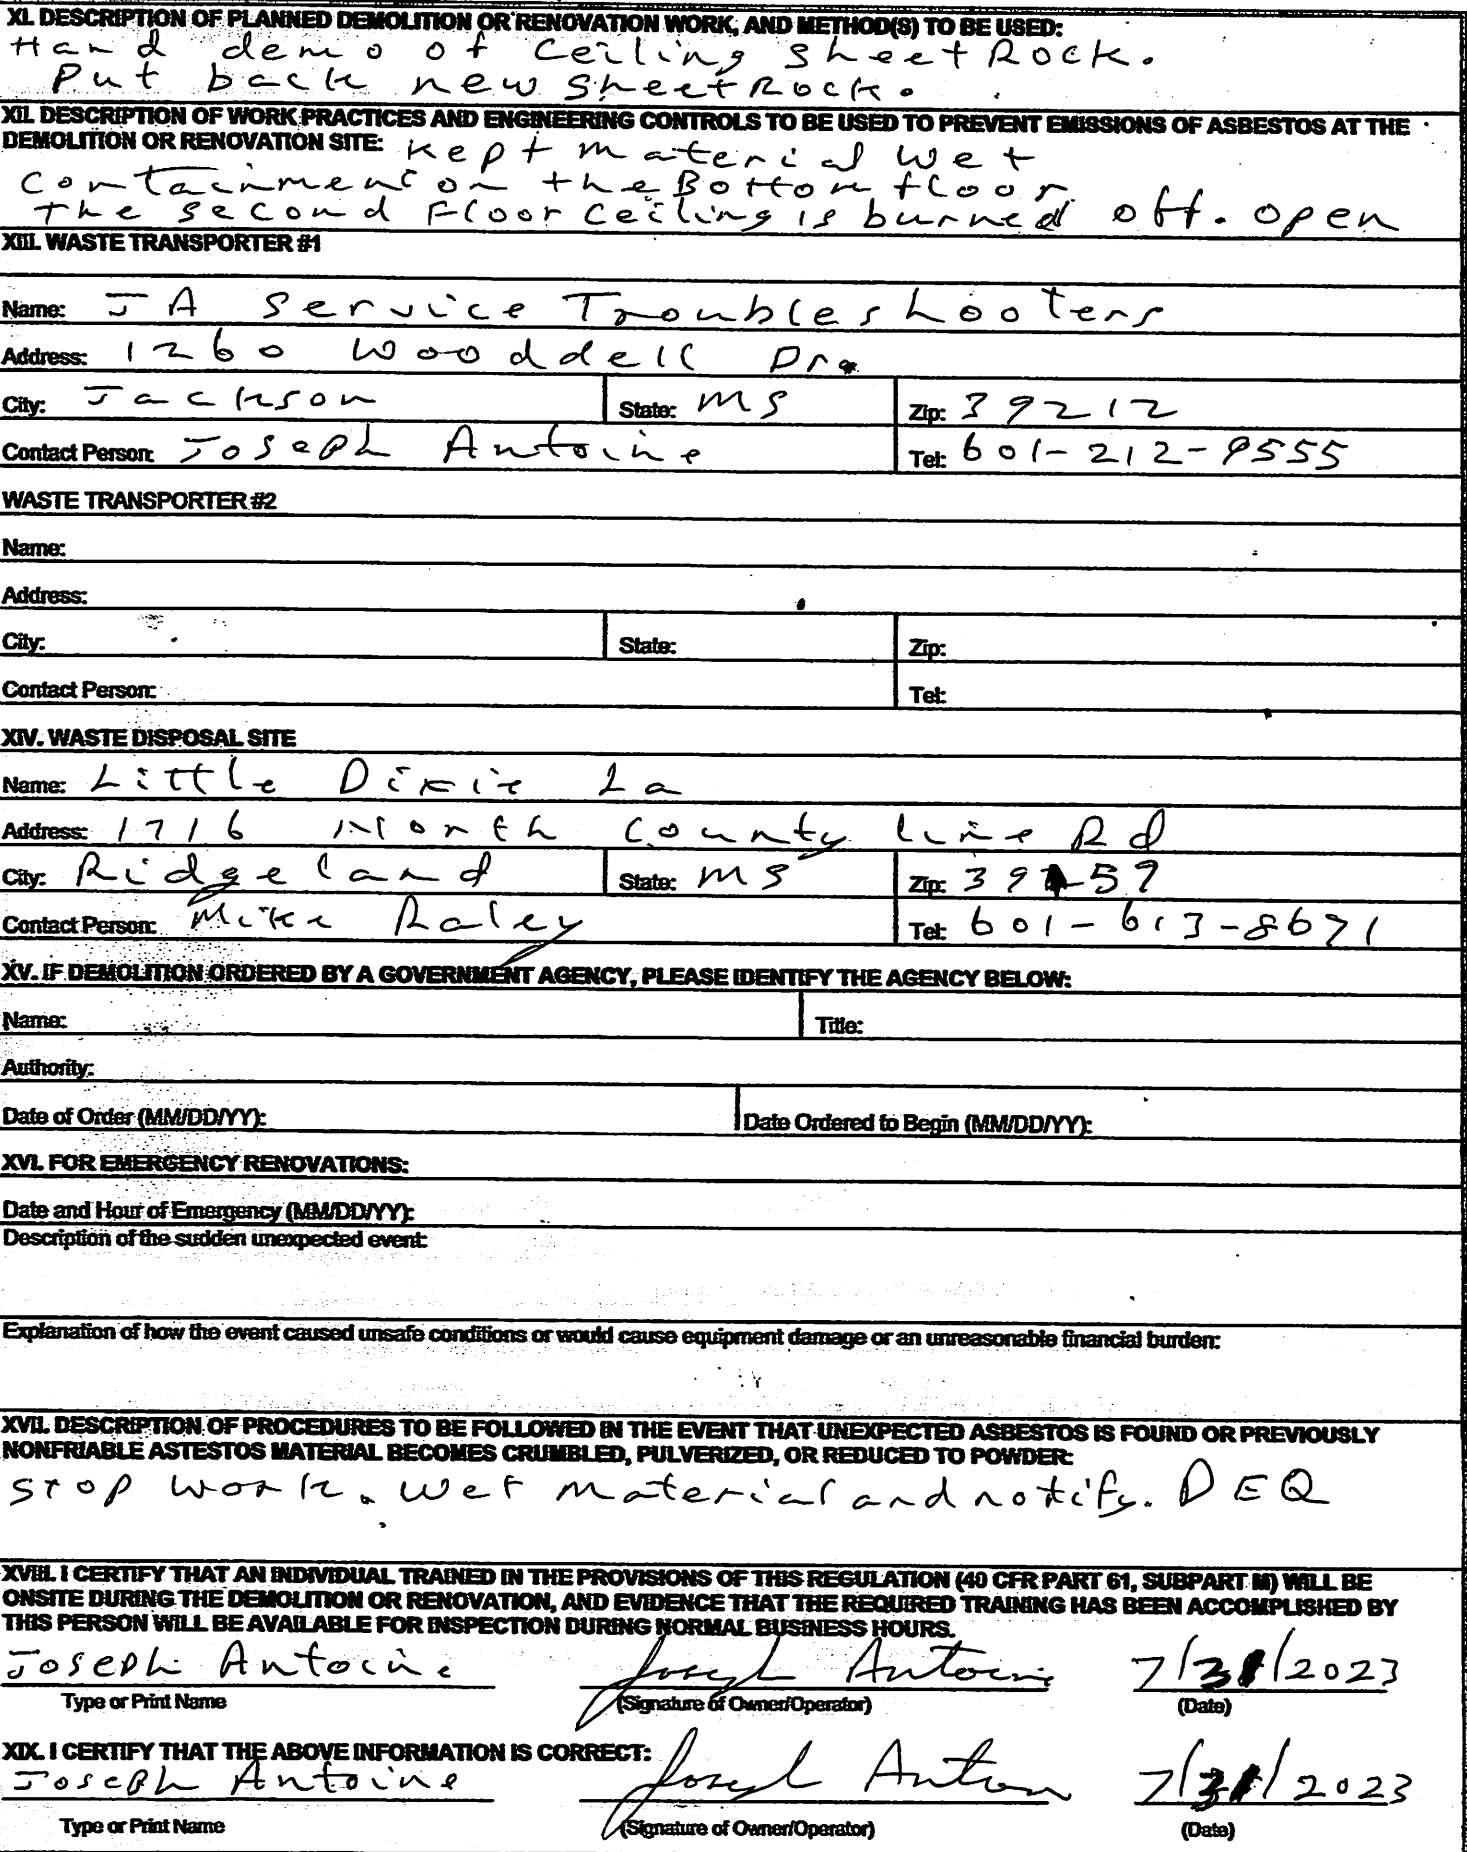 XI. DESCRIPTION OF PLANNED DEMOLITION OR RENOVATION WORK, AND METHOD(S) TO BE USED:
Hand demo of ceiling sheetRock.
Put back new sheetRock.
XII. DESCRIPTION OF WORK PRACTICES AND ENGINEERING CONTROLS TO BE USED TO PREVENT EMISSIONS OF ASBESTOS AT THE
DEMOLITION OR RENOVATION SITE: Kept material wet
Containment on the Bottom floor
The second Floor ceiling is burned off. open
XIII. WASTE TRANSPORTER #1
Name: JA Service Troubleshooters
Address: 1260 Wooddell Dr.
City: Jackson State: MS Zip: 39212
Contact Person: Joseph Antoine Tel: 601-212-9555
WASTE TRANSPORTER #2
Name:
Address:
City: State: Zip:
Contact Person: Tel:
XIV. WASTE DISPOSAL SITE
Name: Little Dixie La
Address: 1716 North County line Rd
City: Ridgeland State: MS Zip: 39157
Contact Person: Mike Raley Tel: 601-613-8671
XV. IF DEMOLITION ORDERED BY A GOVERNMENT AGENCY, PLEASE IDENTIFY THE AGENCY BELOW:
Name: Title:
Authority:
Date of Order (MM/DD/YY): Date Ordered to Begin (MM/DD/YY):
XVI. FOR EMERGENCY RENOVATIONS:
Date and Hour of Emergency (MM/DD/YY):
Description of the sudden unexpected event:
Explanation of how the event caused unsafe conditions or would cause equipment damage or an unreasonable financial burden:
XVII. DESCRIPTION OF PROCEDURES TO BE FOLLOWED IN THE EVENT THAT UNEXPECTED ASBESTOS IS FOUND OR PREVIOUSLY
NONFRIABLE ASTESTOS MATERIAL BECOMES CRUMBLED, PULVERIZED, OR REDUCED TO POWDER:
Stop work. wet material and notify. DEQ
XVIII. I CERTIFY THAT AN INDIVIDUAL TRAINED IN THE PROVISIONS OF THIS REGULATION (40 CFR PART 61, SUBPART M) WILL BE
ONSITE DURING THE DEMOLITION OR RENOVATION, AND EVIDENCE THAT THE REQUIRED TRAINING HAS BEEN ACCOMPLISHED BY
THIS PERSON WILL BE AVAILABLE FOR INSPECTION DURING NORMAL BUSINESS HOURS.
Joseph Antoine Joseph Antoine 7/31/2023
Type or Print Name (Signature of Owner/Operator) (Date)
XIX. I CERTIFY THAT THE ABOVE INFORMATION IS CORRECT:
Joseph Antoine Joseph Antoine 7/31/2023
Type or Print Name (Signature of Owner/Operator) (Date)